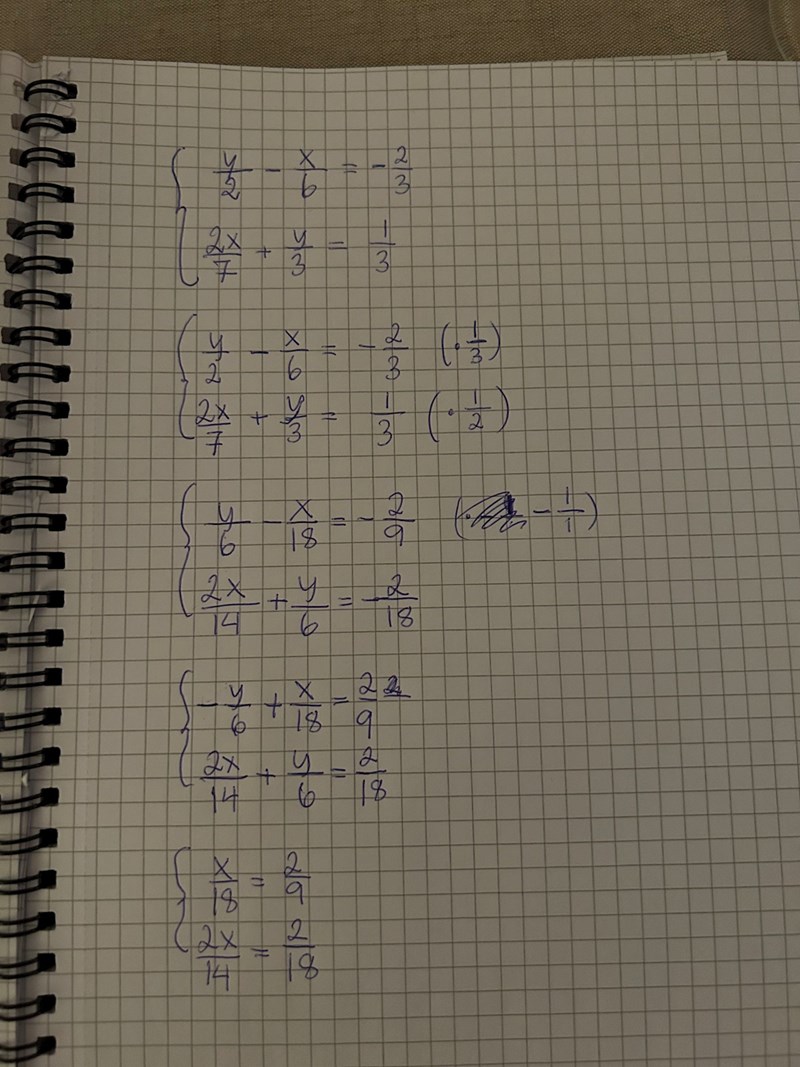 y/2 - x/6 = -2/3
2x/7 + y/3 = 1/3
y/2 - x/6 = -2/3 (·1/3)
2x/7 + y/3 = 1/3 (·1/2)
y/6 - x/18 = -2/9 (· -1/1)
2x/14 + y/6 = -2/18
-y/6 + x/18 = 2/9
2x/14 + y/6 = 2/18
x/18 = 2/9
2x/14 = 2/18